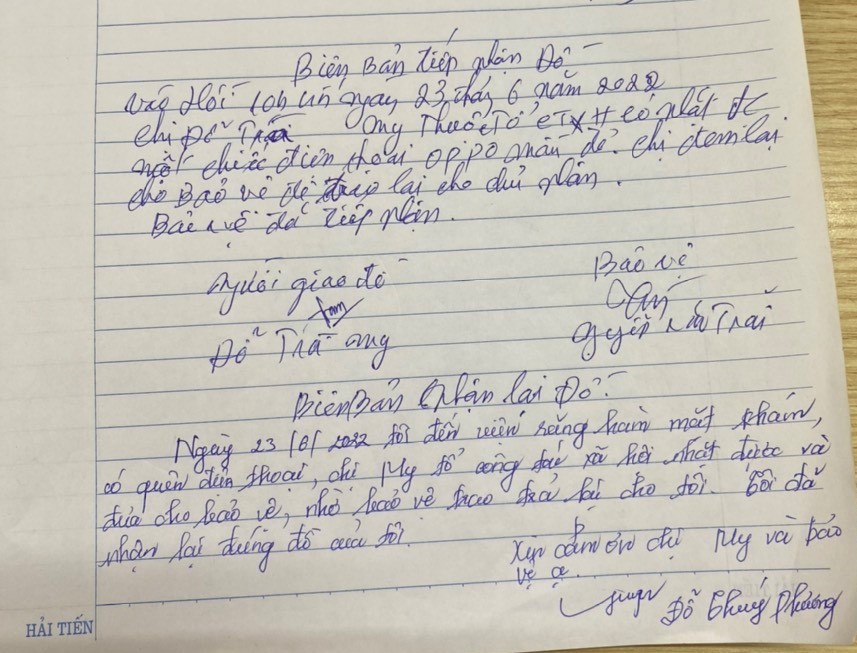 Biên Bản tiếp nhận Đồ
Vào Hồi 10h ngày 23 tháng 6 năm 2022
chị Đỗ Trà My Thuộc Tổ CTXH có nhặt đc
một chiếc điện thoại OPPO màu đỏ. chị đem lại
cho Bảo vệ để trao lại cho chủ nhân.
Bảo vệ đã tiếp nhận.
Người giao đồ
Bảo vệ
Đỗ Trà My
Trãi
Biên Bản Nhận lại Đồ.
Ngày 23/6/2022 tôi đến viện răng hàm mặt khám,
có quên điện thoại, chị My tổ công tác xã hội nhặt được và
đưa cho bảo vệ, nhờ bảo vệ trao trả lại cho tôi. Tôi đã
nhận lại đúng đồ của tôi.
Xin cảm ơn chị My và bảo
vệ ạ.
Đỗ Thuý Phương
HẢI TIẾN